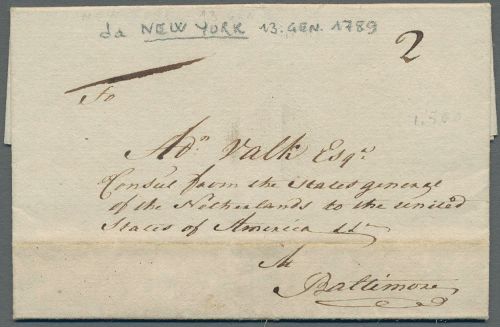 da NEW YORK 13. GEN. 1789
2
To
1.500
Adn. Valk Esqr.
Consul from the States general
of the Netherlands to the united
States of America &&
At
Baltimore